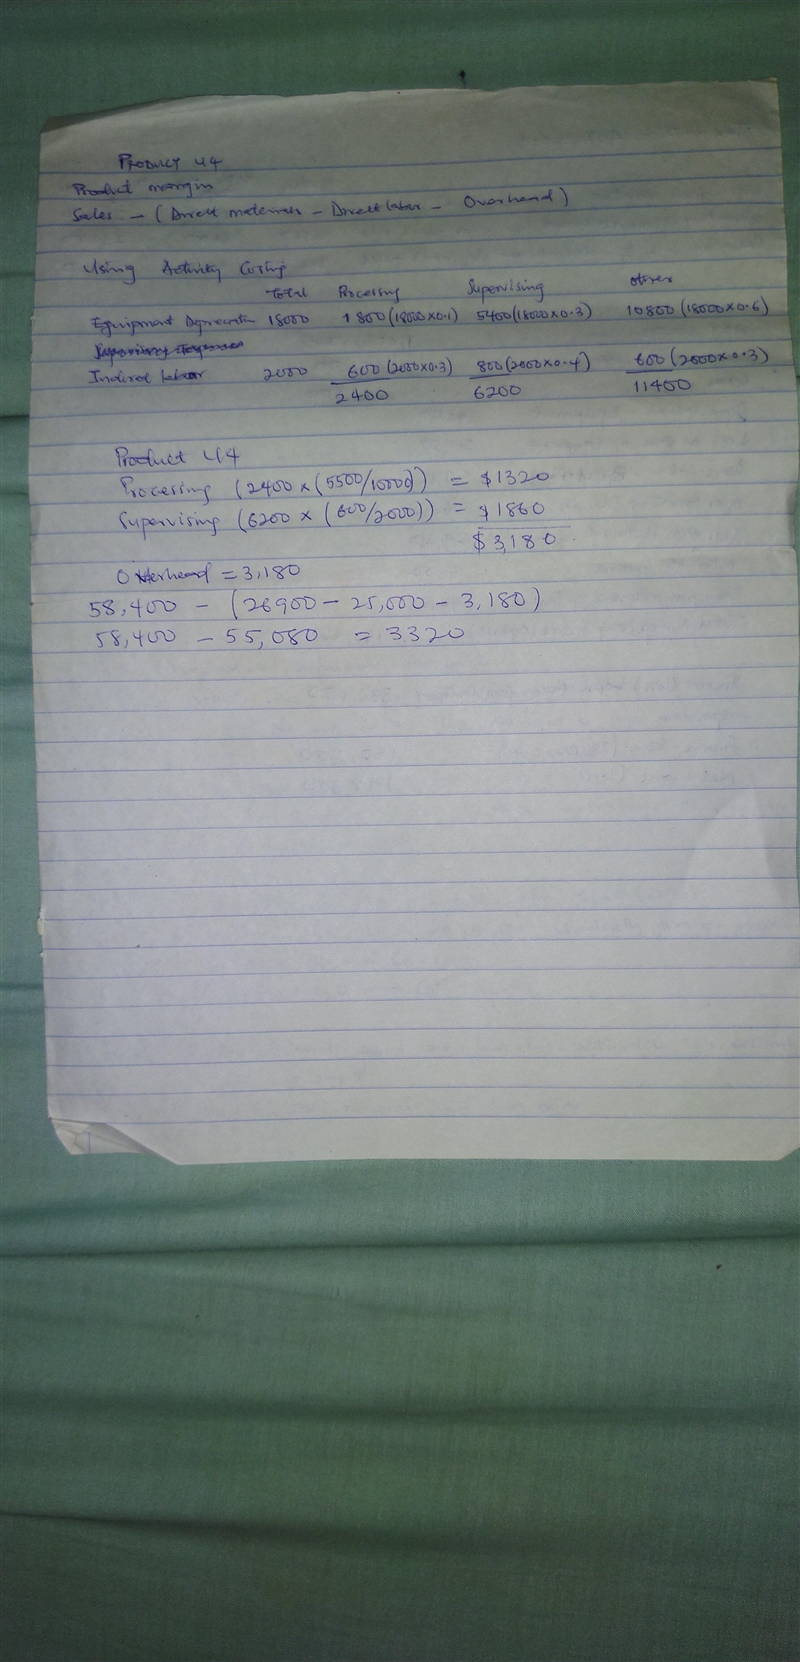 PRODUCT U4
Product margin
Sales - (Direct materials - Direct labor - Overhead)
Using Activity Costing
Total Processing Supervising other
Equipment Depreciation 18000 1800 (18000x0.1) 5400 (18000x0.3) 10800 (18000x0.6)
Indirect labor 2000 600 (2000x0.3) 800 (2000x0.4) 600 (2000x0.3)
2400 6200 11400
Product U4
Processing (2400 x (5500/10000)) = $1320
Supervising (6200 x (600/2000)) = $1860
$3,180
Overhead = 3,180
58,400 - (26900 - 25,000 - 3,180)
58,400 - 55,080 = 3320